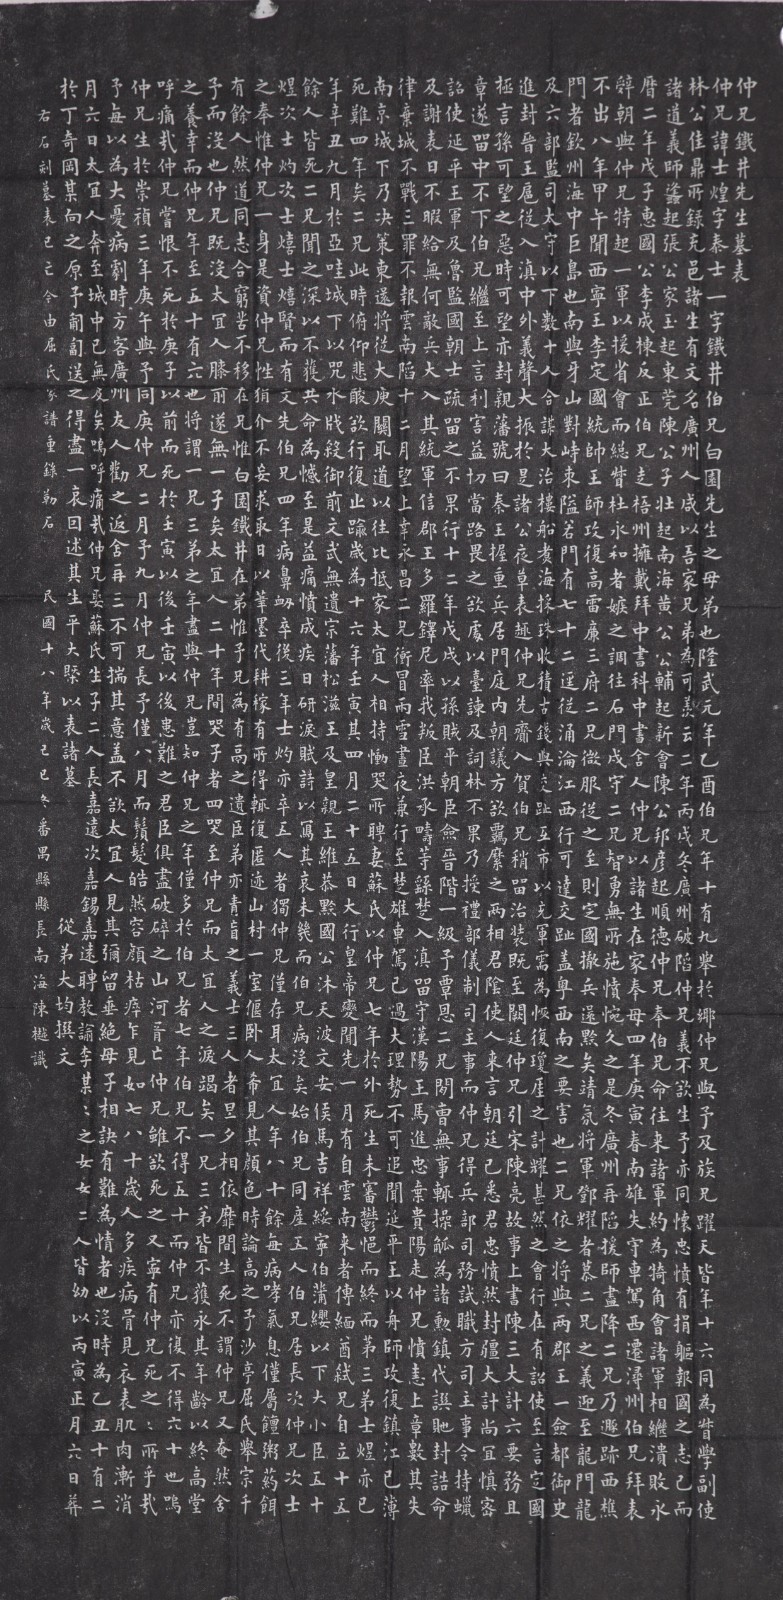 仲兄鐵井先生墓表
仲兄諱士煌字泰士一字鐵井伯兄白園先生之母弟也隆武元年乙酉伯兄年十有九舉於鄉仲兄與予及族兄躍天皆年十六同為督學副使
林公佳鼎所錄充邑諸生有文名廣州人咸以吾家兄弟為可羨云二年丙戌冬廣州破陷仲兄義不欲生予亦同懷忠憤有捐軀報國之志已而
諸道義師蠭起張公家玉起東莞陳公子壯起南海黃公公輔起新會陳公邦彥起順德仲兄奉伯兄命往來諸軍約為犄角會諸軍相繼潰敗永
曆二年戊子惠國公李成棟反正伯兄走梧州擁戴拜中書科中書舍人仲兄以諸生在家奉母四年庚寅春南雄失守車駕西遷潯州伯兄拜表
辭朝與仲兄特起一軍以援省會而總督杜永和者嫉之調往石門戍守二兄智勇無所施憤惋久之是冬廣州再陷援師盡降二兄乃遯跡西樵
不出八年甲午聞西寧王李定國統帥王師攻復高雷廉三府二兄微服從之至則定國撤兵還黔矣靖氛將軍鄧耀者慕二兄之義迎至龍門龍
門者欽州海中巨島也南與牙山對峙東隘若門有七十二逕從涌淪江西行可達交趾蓋粵西南之要害也二兄依之將與兩郡王一僉都御史
及六部監司太守以下數十人合謀大治樓船煑海採珠收積古錢與交趾互市以充軍需為恢復瓊厓之計耀甚然之會行在有詔使至言定國
進封晉王扈從入滇中外義聲大振於是諸公夜草表趣仲兄先齎入賀伯兄稍留治裝既至闕廷仲兄引宋陳亮故事上書陳三大計六要務且
極言孫可望之惡時可望亦封親藩號曰秦王握重兵居門庭內朝議方欲羈縻之兩相君陰使人來言朝廷已悉君忠憤然封疆大計尚宜慎密
章遂留中不下伯兄繼至上言利害益切當路畏之欲處以臺諫及詞林不果乃授禮部儀制司主事而仲兄得兵部司務試職方司主事令持蠟
詔使延平王軍及魯監國朝士疏留之不果行十二年戊戌以孫賊平朝臣僉晉階一級予覃恩二兄閒曹無事輒操觚為諸勳鎮代譔貤封誥命
及謝表日不暇給無何敵兵大入其統軍信郡王多羅鐸尼率我叛臣洪承疇等繇楚入滇留守漢陽王馬進忠棄貴陽走仲兄憤恚上章數其失
律棄城不戰三罪不報雲南陷十二月望上幸永昌二兄衝冒雨雪晝夜兼行至楚雄車駕已過大理勢不可追聞延平王以舟師攻復鎮江已薄
南京城下乃決策東還將從大庾關取道以往比抵家太宜人相持慟哭所聘妻蘇氏以仲兄七年於外死生未審鬱悒而終而第三弟士煜亦已
死難四年矣二兄此時俯仰悲歎欲行復止踰歲為十六年壬寅其四月二十五日大行皇帝變聞先一月有自雲南來者傳緬酋弒兄自立十五
年辛丑九月於亞哇城下以咒水戕殺御前文武無遺宗藩松滋王及皇親王維恭黔國公沐天波文安侯馬吉祥綏寧伯蒲纓以下大小臣五十
餘人皆死二兄聞之深以不獲共命為憾至是益痛憤成疾日研淚賦詩以寫其哀未幾而伯兄病沒矣始伯兄同產五人伯兄居長次仲兄次士
煜次士灼次士熺士熺賢而有文先伯兄四年病鼻衂卒後三年士灼亦卒五人者獨仲兄僅存耳太宜人年八十餘每病哮氣息僅屬饘粥葯餌
之奉惟仲兄一身是資仲兄性狷介不妄求取日以筆墨代耕稼有所得輒復匿迹山村一室偃臥人希見其顏色時論高之予沙亭屈氏舉宗千
有餘人然道同志合窮苦不移在兄惟白園鐵井在弟惟予兄為有高之遺臣弟亦青盲之義士三人者旦夕相依靡間生死不謂仲兄又奄然舍
予而沒也仲兄既沒太宜人膝前遂無一子矣太宜人二十年間哭子者四哭至仲兄而太宜人之淚竭矣一兄三弟皆不獲永其年齡以終高堂
之養幸而仲兄年至五十有六也將謂一兄三弟之年盡與仲兄豈知仲兄之年僅多於伯兄者七年伯兄不得五十而仲兄亦復不得六十也嗚
呼痛哉仲兄嘗恨不死於庚子以前而死於壬寅以後壬寅以後患難之君臣俱盡破碎之山河胥亡仲兄雖欲死之又寧有仲兄死之之所乎哉
仲兄生於崇禎三年庚午與予同庚仲兄二月予九月仲兄長予僅八月而鬚髮皓然容顏枯瘁乍見如七八十歲人多疾病骨見衣表肌肉漸消
予每以為大憂病劇時方客廣州友人勸之返舍再三不可揣其意蓋不欲太宜人見其彌留垂絕母子相訣有難為情者也沒時為乙丑十有二
月六日太宜人奔至城中已無及矣嗚呼痛哉仲兄娶蘇氏生子二人長嘉遠次嘉錫嘉遠聘教諭李某某之女女二人皆幼以丙寅正月六日葬
於丁奇岡某向之原予匍匐送之得盡一哀因述其生平大槩以表諸墓　從弟大均撰文
右石刻墓表已亡今由屈氏家譜重錄勒石　民國十八年歲己巳冬番禺縣縣長南海陳樾識